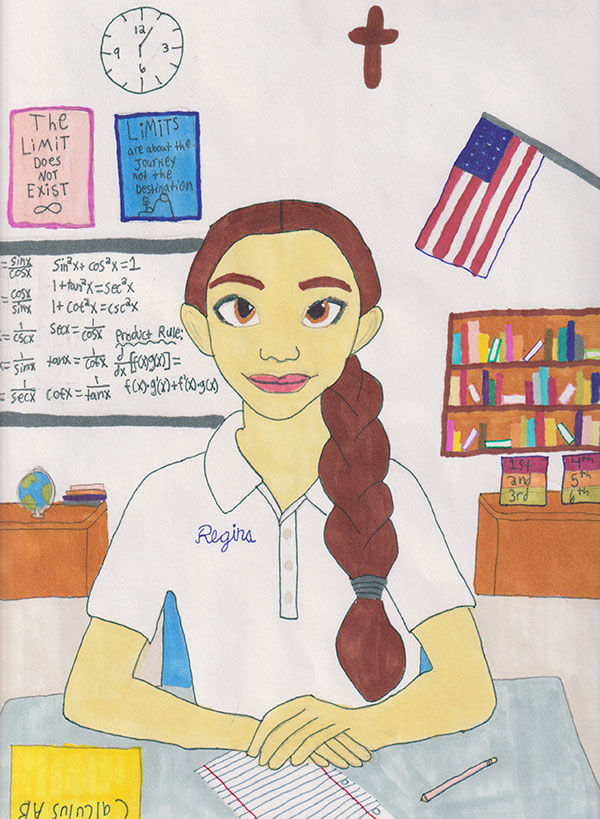 12
9 3
6
The
LiMiT
Does
NOT
EXIST
∞
LiMiTs
are about the
Journey
not the
Destination
= sinx/cosx sin²x + cos²x = 1
= cosx/sinx 1 + tan²x = sec²x
1 + cot²x = csc²x
x = 1/cscx secx = 1/cosx Product Rule:
x = 1/sinx tanx = 1/cotx d/dx [f(x)g(x)] =
= 1/secx cotx = 1/tanx f(x)·g'(x) + f'(x)·g(x)
Regina
1st
2nd
3rd
4th
5th
6th
Calculus AB